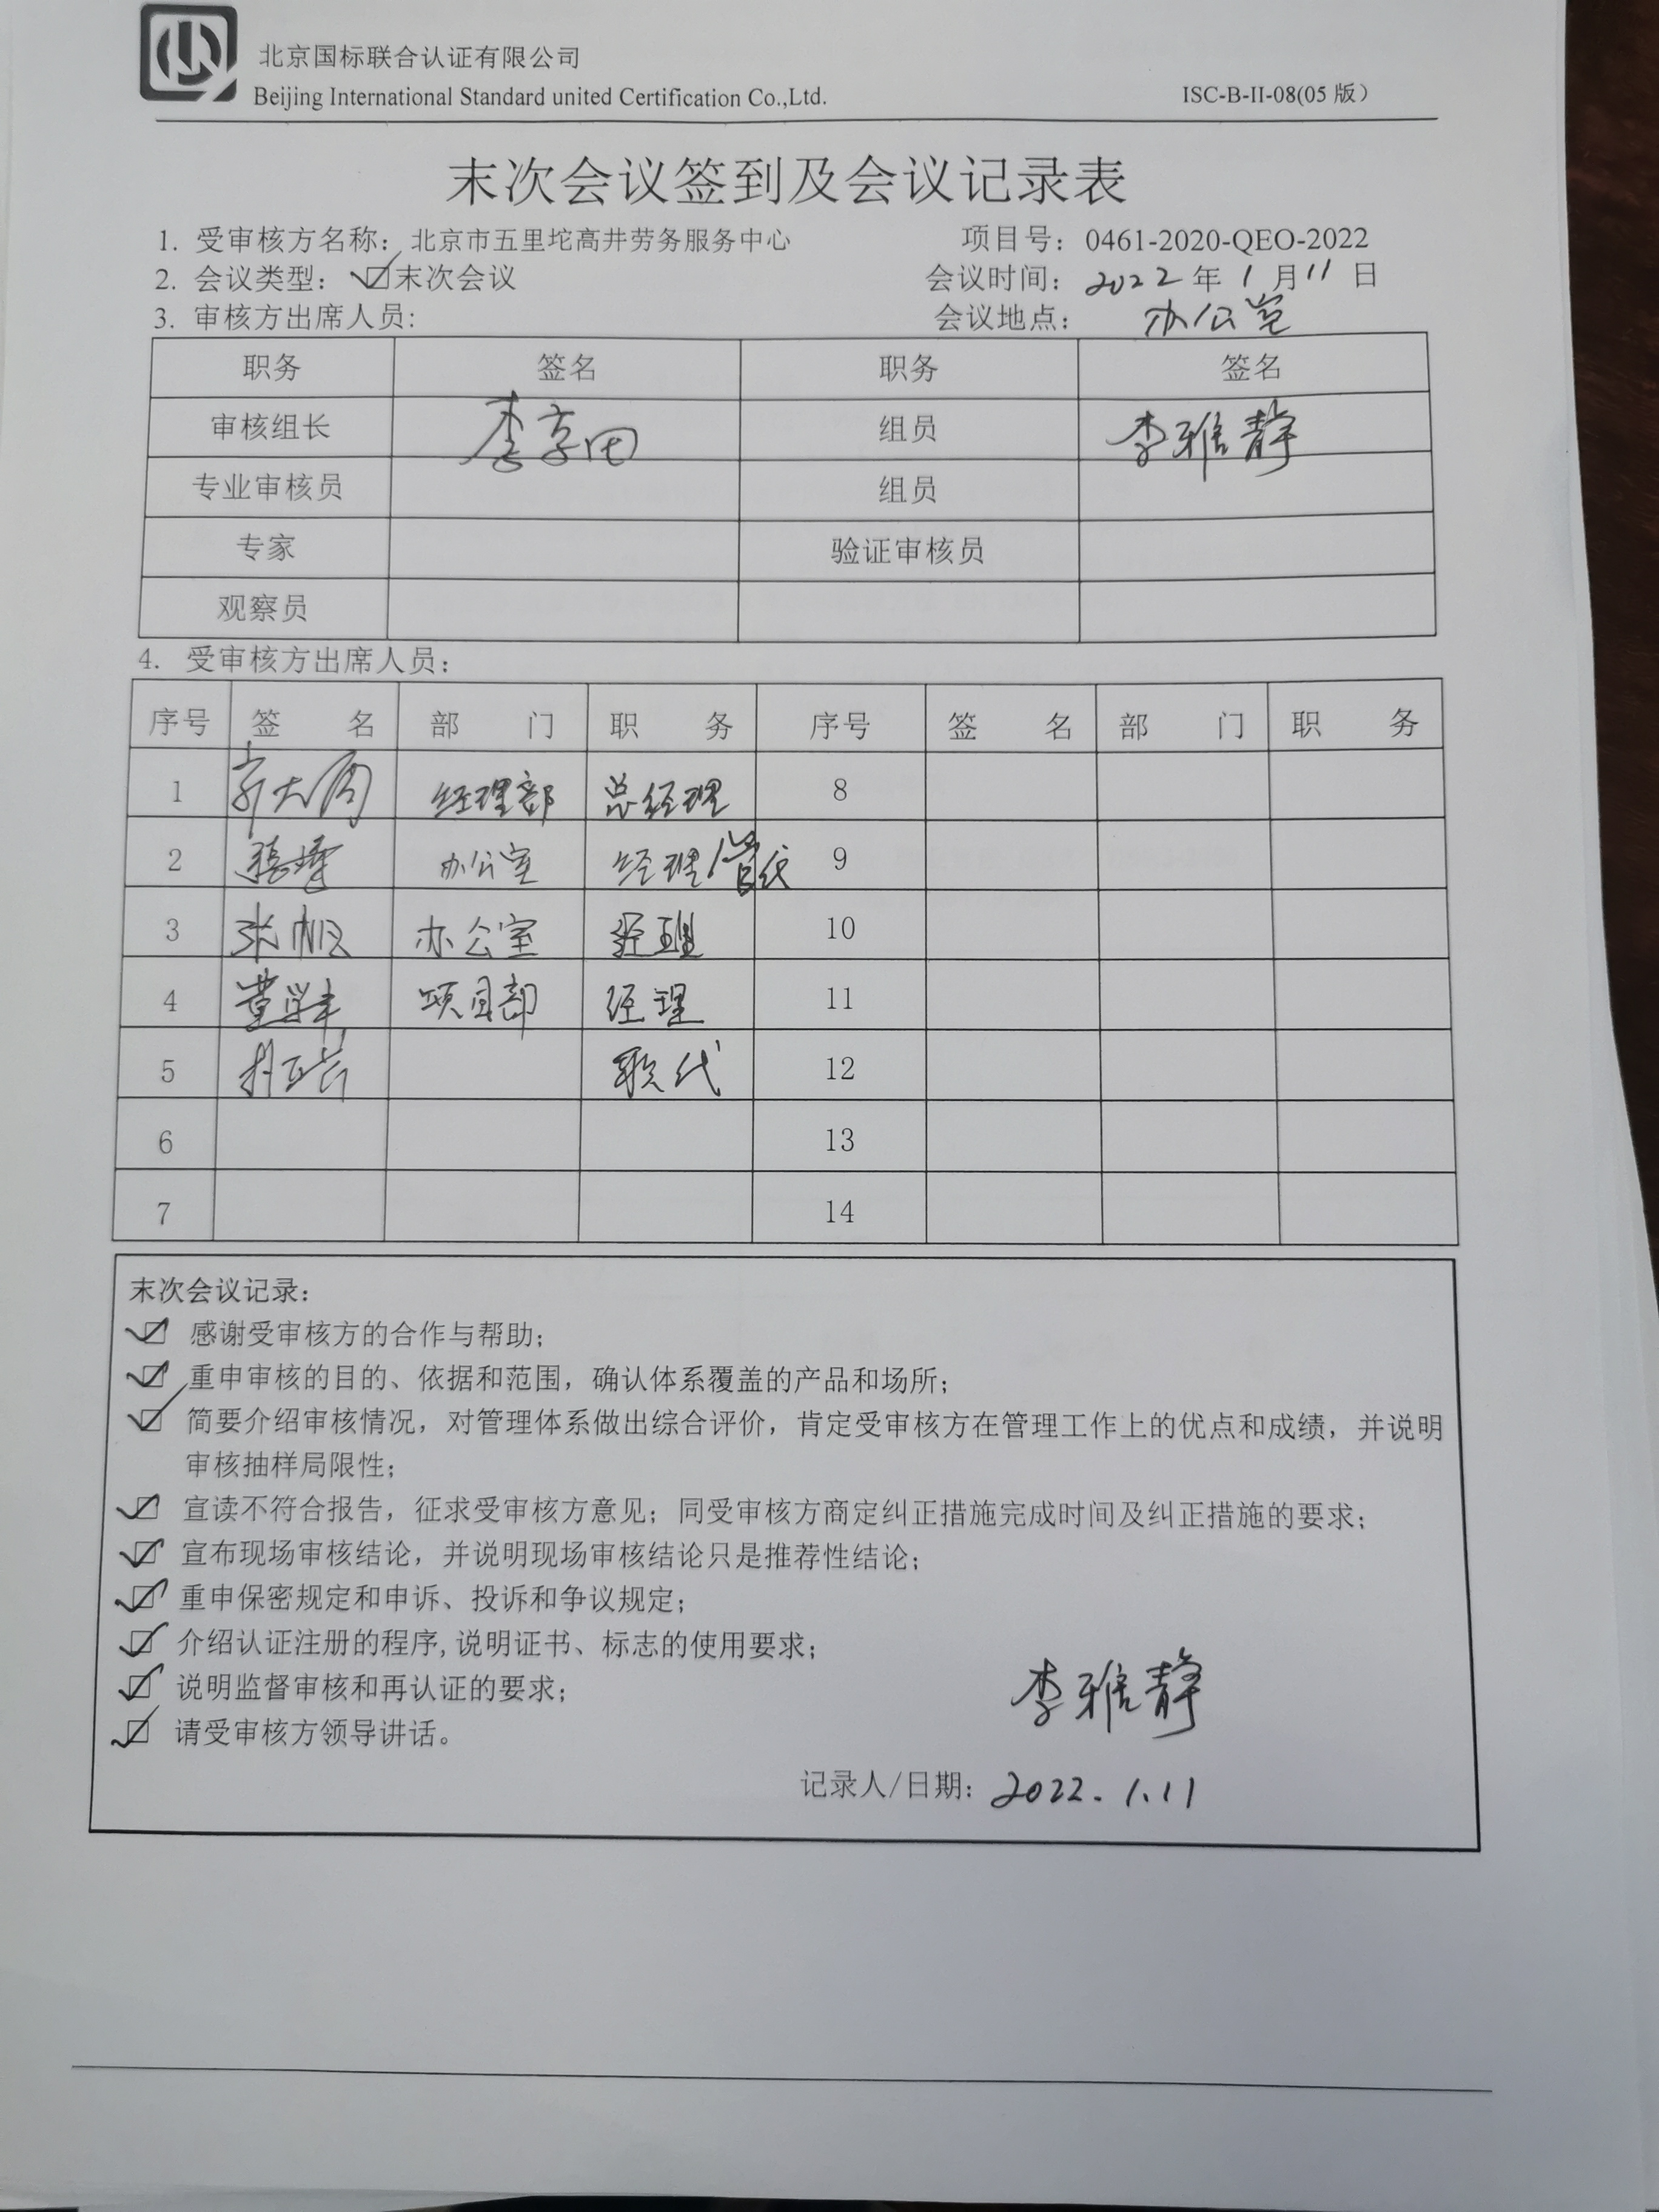 北京国标联合认证有限公司
Beijing International Standard united Certification Co.,Ltd.
ISC-B-II-08(05 版）
末次会议签到及会议记录表
1. 受审核方名称：北京市五里坨高井劳务服务中心 项目号：0461-2020-QEO-2022
2. 会议类型：☑末次会议 会议时间：2022 年 1 月 11 日
3. 审核方出席人员： 会议地点：办公室
职务 签名 职务 签名
审核组长 李享田 组员 李雅静
专业审核员 组员
专家 验证审核员
观察员
4. 受审核方出席人员：
序号 签 名 部 门 职 务 序号 签 名 部 门 职 务
1 经理部 总经理 8
2 办公室 经理/管代 9
3 张帆 办公室 经理 10
4 董学丰 项目部 经理 11
5 职代 12
6 13
7 14
末次会议记录：
☑ 感谢受审核方的合作与帮助；
☑ 重申审核的目的、依据和范围，确认体系覆盖的产品和场所；
☑ 简要介绍审核情况，对管理体系做出综合评价，肯定受审核方在管理工作上的优点和成绩，并说明
审核抽样局限性；
☑ 宣读不符合报告，征求受审核方意见；同受审核方商定纠正措施完成时间及纠正措施的要求；
☑ 宣布现场审核结论，并说明现场审核结论只是推荐性结论；
☑ 重申保密规定和申诉、投诉和争议规定；
☑ 介绍认证注册的程序，说明证书、标志的使用要求；
☑ 说明监督审核和再认证的要求；
☑ 请受审核方领导讲话。
李雅静
记录人/日期：2022.1.11